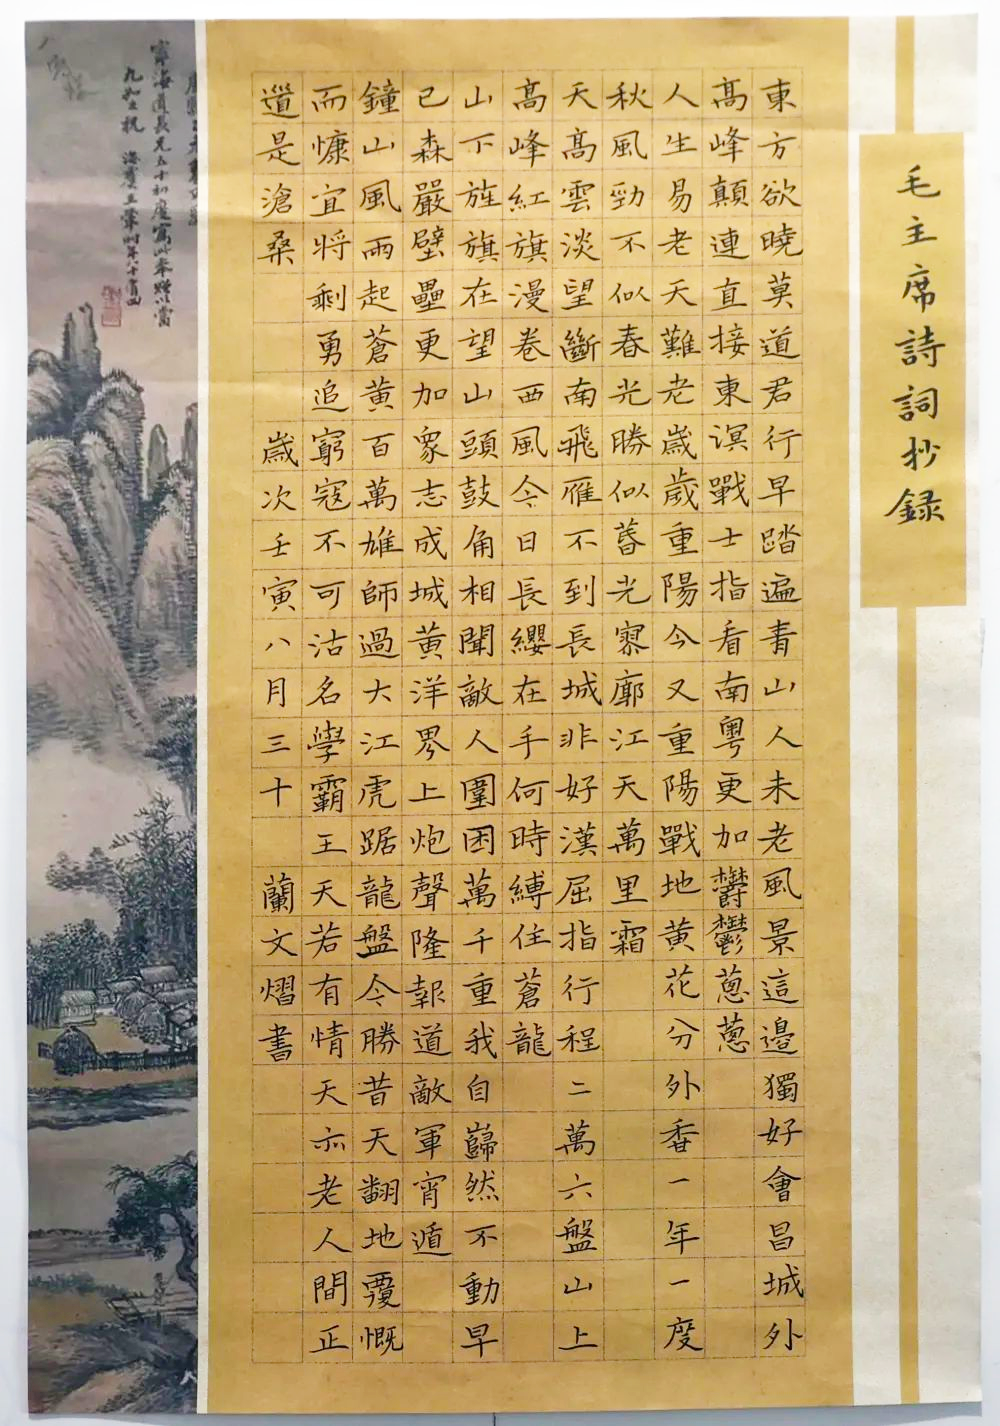 毛主席詩詞抄録
東方欲曉莫道君行早踏遍青山人未老風景這邊獨好會昌城外
高峰顛連直接東溟戰士指看南粵更加鬱鬱蔥蔥
人生易老天難老歲歲重陽今又重陽戰地黃花分外香一年一度
秋風勁不似春光勝似春光寥廓江天萬里霜
天高雲淡望斷南飛雁不到長城非好漢屈指行程二萬六盤山上
高峰紅旗漫卷西風今日長纓在手何時縛住蒼龍
山下旌旗在望山頭鼓角相聞敵人圍困萬千重我自巋然不動早
已森嚴壁壘更加眾志成城黃洋界上炮聲隆報道敵軍宵遁
鐘山風雨起蒼黃百萬雄師過大江虎踞龍盤今勝昔天翻地覆慨
而慷宜將剩勇追窮寇不可沽名學霸王天若有情天亦老人間正
道是滄桑 歲次壬寅八月三十 蘭文熠書
寧海道長兄五十初度寫此奉贈以當
九如之祝